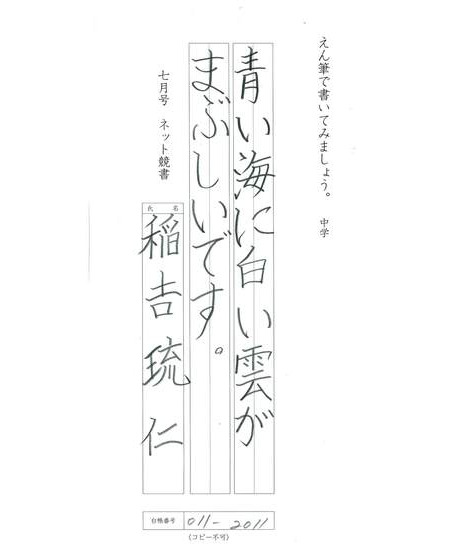 えん筆で書いてみましょう。 中学
青い海に白い雲が
まぶしいです。
七月号 ネット競書
氏名
稲吉琉仁
台帳番号 011-2011
(コピー不可)